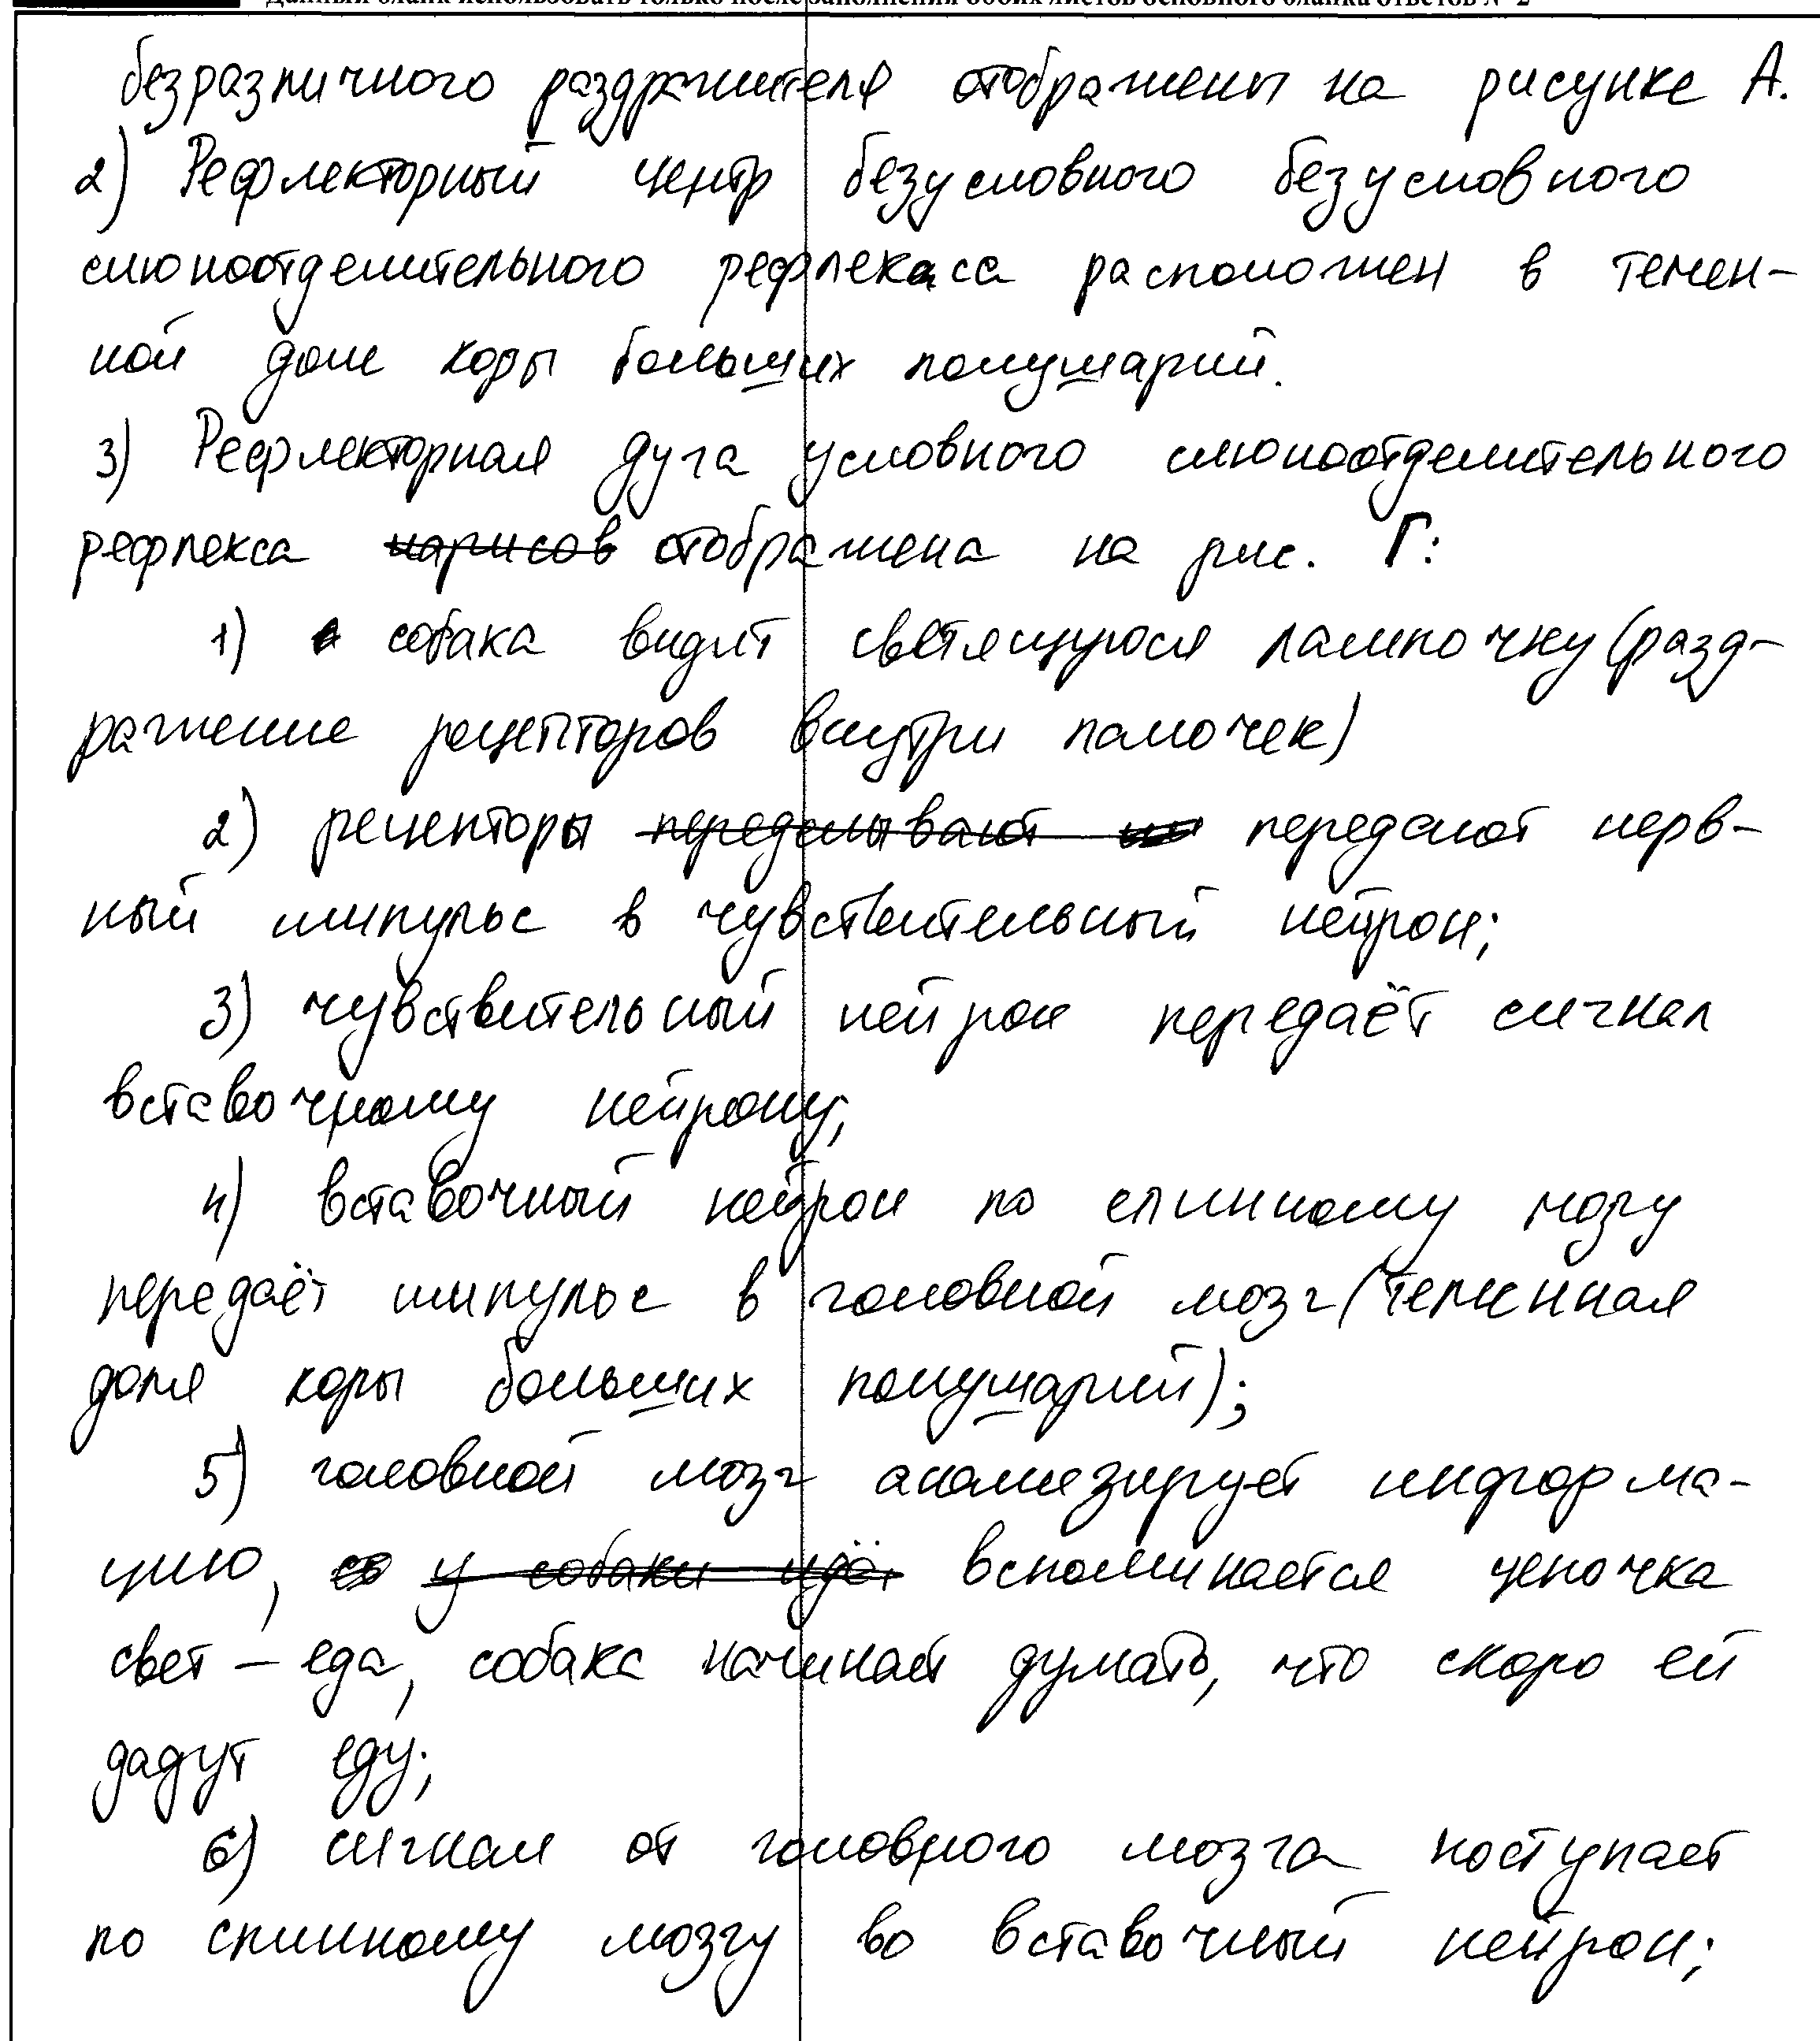 Данный бланк использовать только после заполнения обоих листов основного бланка ответов № 2
безразличного раздражителя отображены на рисунке А.
2) Рефлекторный центр безусловного безусловного
слюноотделительного рефлекса расположен в темен-
ной доле коры больших полушарий.
3) Рефлекторная дуга условного слюноотделительного
рефлекса нарисов отображена на рис. Г:
1) собака видит светящуюся лампочку (разд-
ражение рецепторов внутри палочек)
2) рецепторы передают нерв-
ный импульс в чувствительный нейрон;
3) чувствительный нейрон передаёт сигнал
вставочному нейрону;
4) вставочный нейрон по спинному мозгу
передаёт импульс в головной мозг (теменная
доля коры больших полушарий);
5) головной мозг анализирует информа-
цию, у собаки идёт вспоминается цепочка
свет – еда, собака начинает думать, что скоро ей
дадут еду;
6) сигнал от головного мозга поступает
по спинному мозгу во вставочный нейрон;